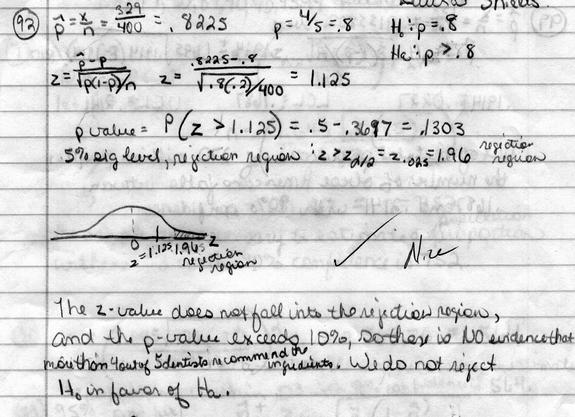 92) p̂ = x/n = 329/400 = .8225 p = 4/5 = .8 H₀: p = .8
Ha: p > .8
z = p̂-p/√p(1-p)/n z = .8225-.8/√.8(.2)/400 = 1.125
p value = P(z > 1.125) = .5 - .3697 = .1303
5% sig level, rejection region: z > z α/2 = z.025 = 1.96 rejection region
0 1.125 1.96 z
z = rejection region
✓ Nice
The z-value does not fall into the rejection region,
and the p-value exceeds 10%, so there is NO evidence that
more than 4 out of 5 dentists recommend the ingredients. We do not reject
H₀ in favor of Ha.